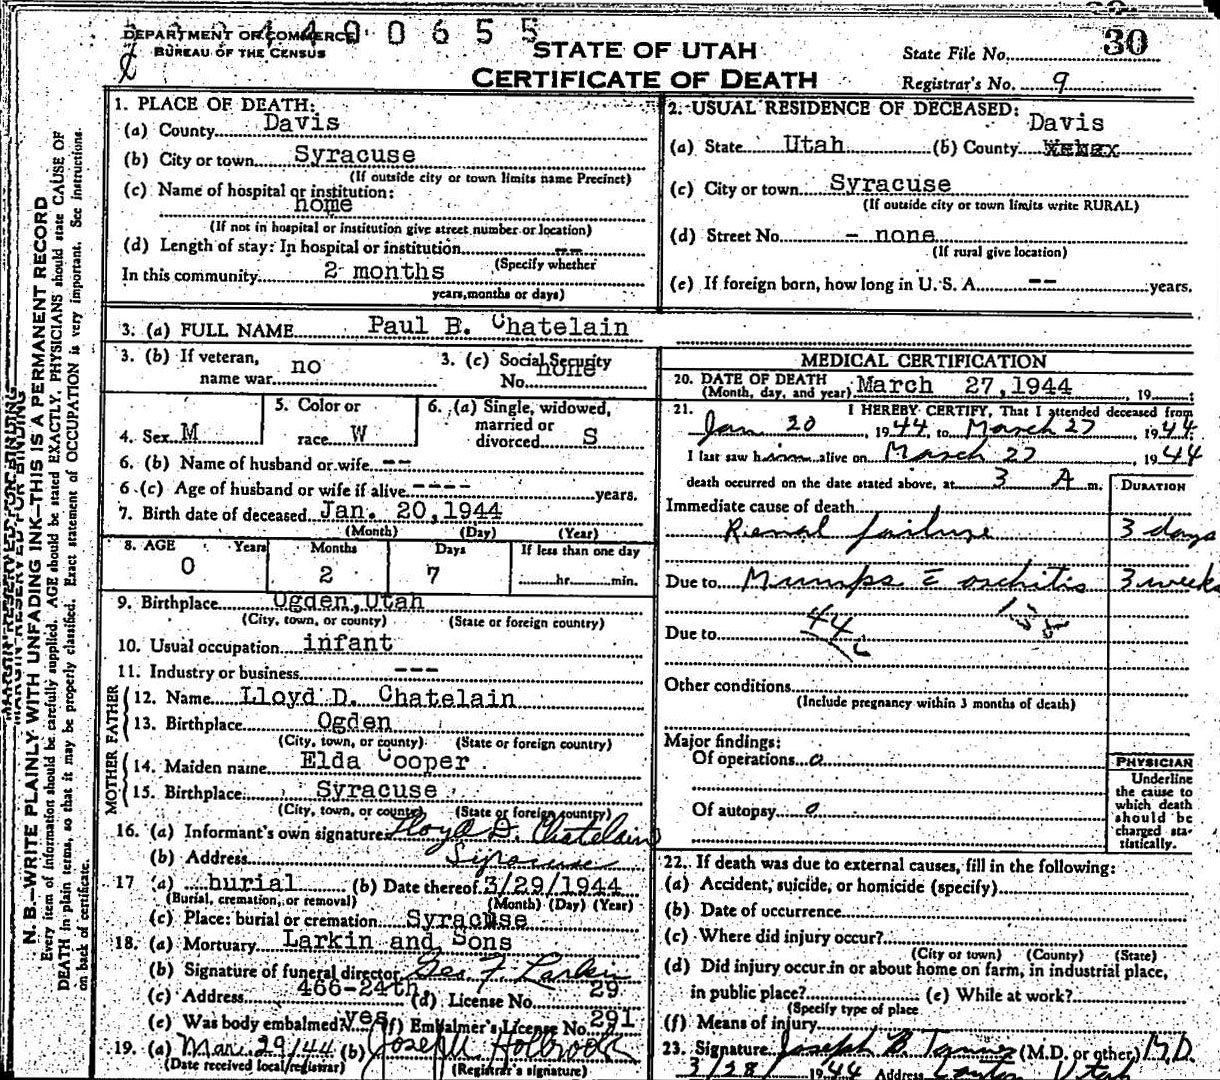 DEPARTMENT OF COMMERCE
BUREAU OF THE CENSUS
4400655
STATE OF UTAH
CERTIFICATE OF DEATH
State File No. 30
Registrar's No. 9
MARGIN RESERVED FOR BINDING
N. B.—WRITE PLAINLY WITH UNFADING INK—THIS IS A PERMANENT RECORD
Every item of information should be carefully supplied. AGE should be stated EXACTLY. PHYSICIANS should state CAUSE OF
DEATH in plain terms, so that it may be properly classified. Exact statement of OCCUPATION is very important. See instructions
on back of certificate.
1. PLACE OF DEATH:
(a) County Davis
(b) City or town Syracuse
(If outside city or town limits name Precinct)
(c) Name of hospital or institution:
home
(If not in hospital or institution give street number or location)
(d) Length of stay: In hospital or institution --
(Specify whether
In this community 2 months
years, months or days)
2. USUAL RESIDENCE OF DECEASED:
Davis
(a) State Utah (b) County
(c) City or town Syracuse
(If outside city or town limits write RURAL)
(d) Street No. - none
(If rural give location)
(e) If foreign born, how long in U. S. A. -- years.
3. (a) FULL NAME Paul B. Chatelain
3. (b) If veteran,
name war no
3. (c) Social Security
No. none
4. Sex M
5. Color or
race W
6. (a) Single, widowed,
married or
divorced S
6. (b) Name of husband or wife --
6. (c) Age of husband or wife if alive ---- years.
7. Birth date of deceased Jan. 20, 1944
(Month) (Day) (Year)
8. AGE Years Months Days If less than one day
0 2 7 hr. min.
9. Birthplace Ogden, Utah
(City, town, or county) (State or foreign country)
10. Usual occupation infant
11. Industry or business ---
FATHER
12. Name Lloyd D. Chatelain
13. Birthplace Ogden
(City, town, or county) (State or foreign country)
MOTHER
14. Maiden name Elda Cooper
15. Birthplace Syracuse
(City, town, or county) (State or foreign country)
16. (a) Informant's own signature Lloyd D. Chatelain
(b) Address Syracuse
17 (a) burial (b) Date thereof 3/29/1944
(Burial, cremation, or removal) (Month) (Day) (Year)
(c) Place: burial or cremation Syracuse
18. (a) Mortuary Larkin and Sons
(b) Signature of funeral director Geo. F. Larkin
(c) Address 466-24th. (d) License No. 29
(e) Was body embalmed? yes (f) Embalmer's License No. 291
19. (a) Mar. 29/44 (b) Joseph Holbrook
(Date received local registrar) (Registrar's signature)
MEDICAL CERTIFICATION
20. DATE OF DEATH
(Month, day, and year) March 27, 1944, 19
21. I HEREBY CERTIFY, That I attended deceased from
Jan 20, 1944, to March 27, 1944
I last saw him alive on March 27, 1944
death occurred on the date stated above, at 3 A m.
DURATION
Immediate cause of death
Renal failure 3 days
Due to Mumps c̄ orchitis 3 weeks
44c 138
Due to
Other conditions
(Include pregnancy within 3 months of death)
Major findings:
Of operations 0
Of autopsy 0
PHYSICIAN
Underline
the cause to
which death
should be
charged sta-
tistically.
22. If death was due to external causes, fill in the following:
(a) Accident, suicide, or homicide (specify)
(b) Date of occurrence
(c) Where did injury occur?
(City or town) (County) (State)
(d) Did injury occur in or about home on farm, in industrial place,
in public place? (e) While at work?
(Specify type of place
(f) Means of injury
23. Signature Joseph B. Tanner (M.D. or other) M.D.
3/28/1944 Address Layton Utah